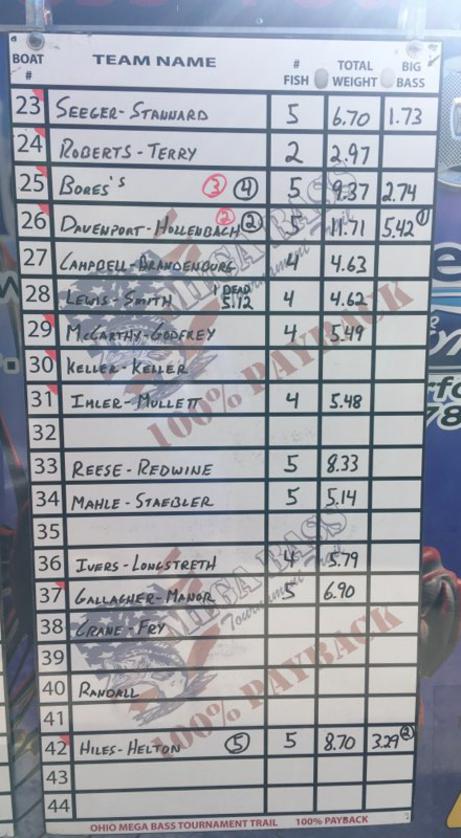 BOAT # TEAM NAME # FISH TOTAL WEIGHT BIG BASS
23 SEEGER-STANNARD 5 6.70 1.73
24 ROBERTS-TERRY 2 2.97
25 BORES'S 3 4 5 9.37 2.74
26 DAVENPORT-HOLLENBACH 2 2 5 11.71 5.42 1
27 CAMPBELL-BRANDENBURG 4 4.63
28 LEWIS-SMITH 1 DEAD 5.12 4 4.62
29 MCCARTHY-GODFREY 4 5.49
30 KELLER-KELLER
31 IHLER-MULLETT 4 5.48
32
33 REESE-REDWINE 5 8.33
34 MAHLE-STAEBLER 5 5.14
35
36 IVERS-LONGSTRETH 4 5.79
37 GALLAGHER-MANOR 5 6.90
38 CRANE-FRY
39
40 RANDALL
41
42 HILES-HELTON 5 5 8.70 3.29 2
43
44
MEGA BASS
Tournament Trail
100% PAYBACK
MEGA BASS
Tournament Trail
100% PAYBACK
OHIO MEGA BASS TOURNAMENT TRAIL 100% PAYBACK